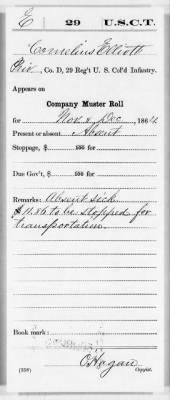 E 29 U.S.C.T.
Cornelius Elliott
Priv, Co. D, 29 Reg't U. S. Col'd Infantry.
Appears on
Company Muster Roll
for Nov & Dec, 1864
Present or absent Absent
Stoppage, $ 100 for
Due Gov't, $ 100 for
Remarks: Absent sick
$11.86 to be stopped for
transportation.
Book mark:
(358) Copyist.